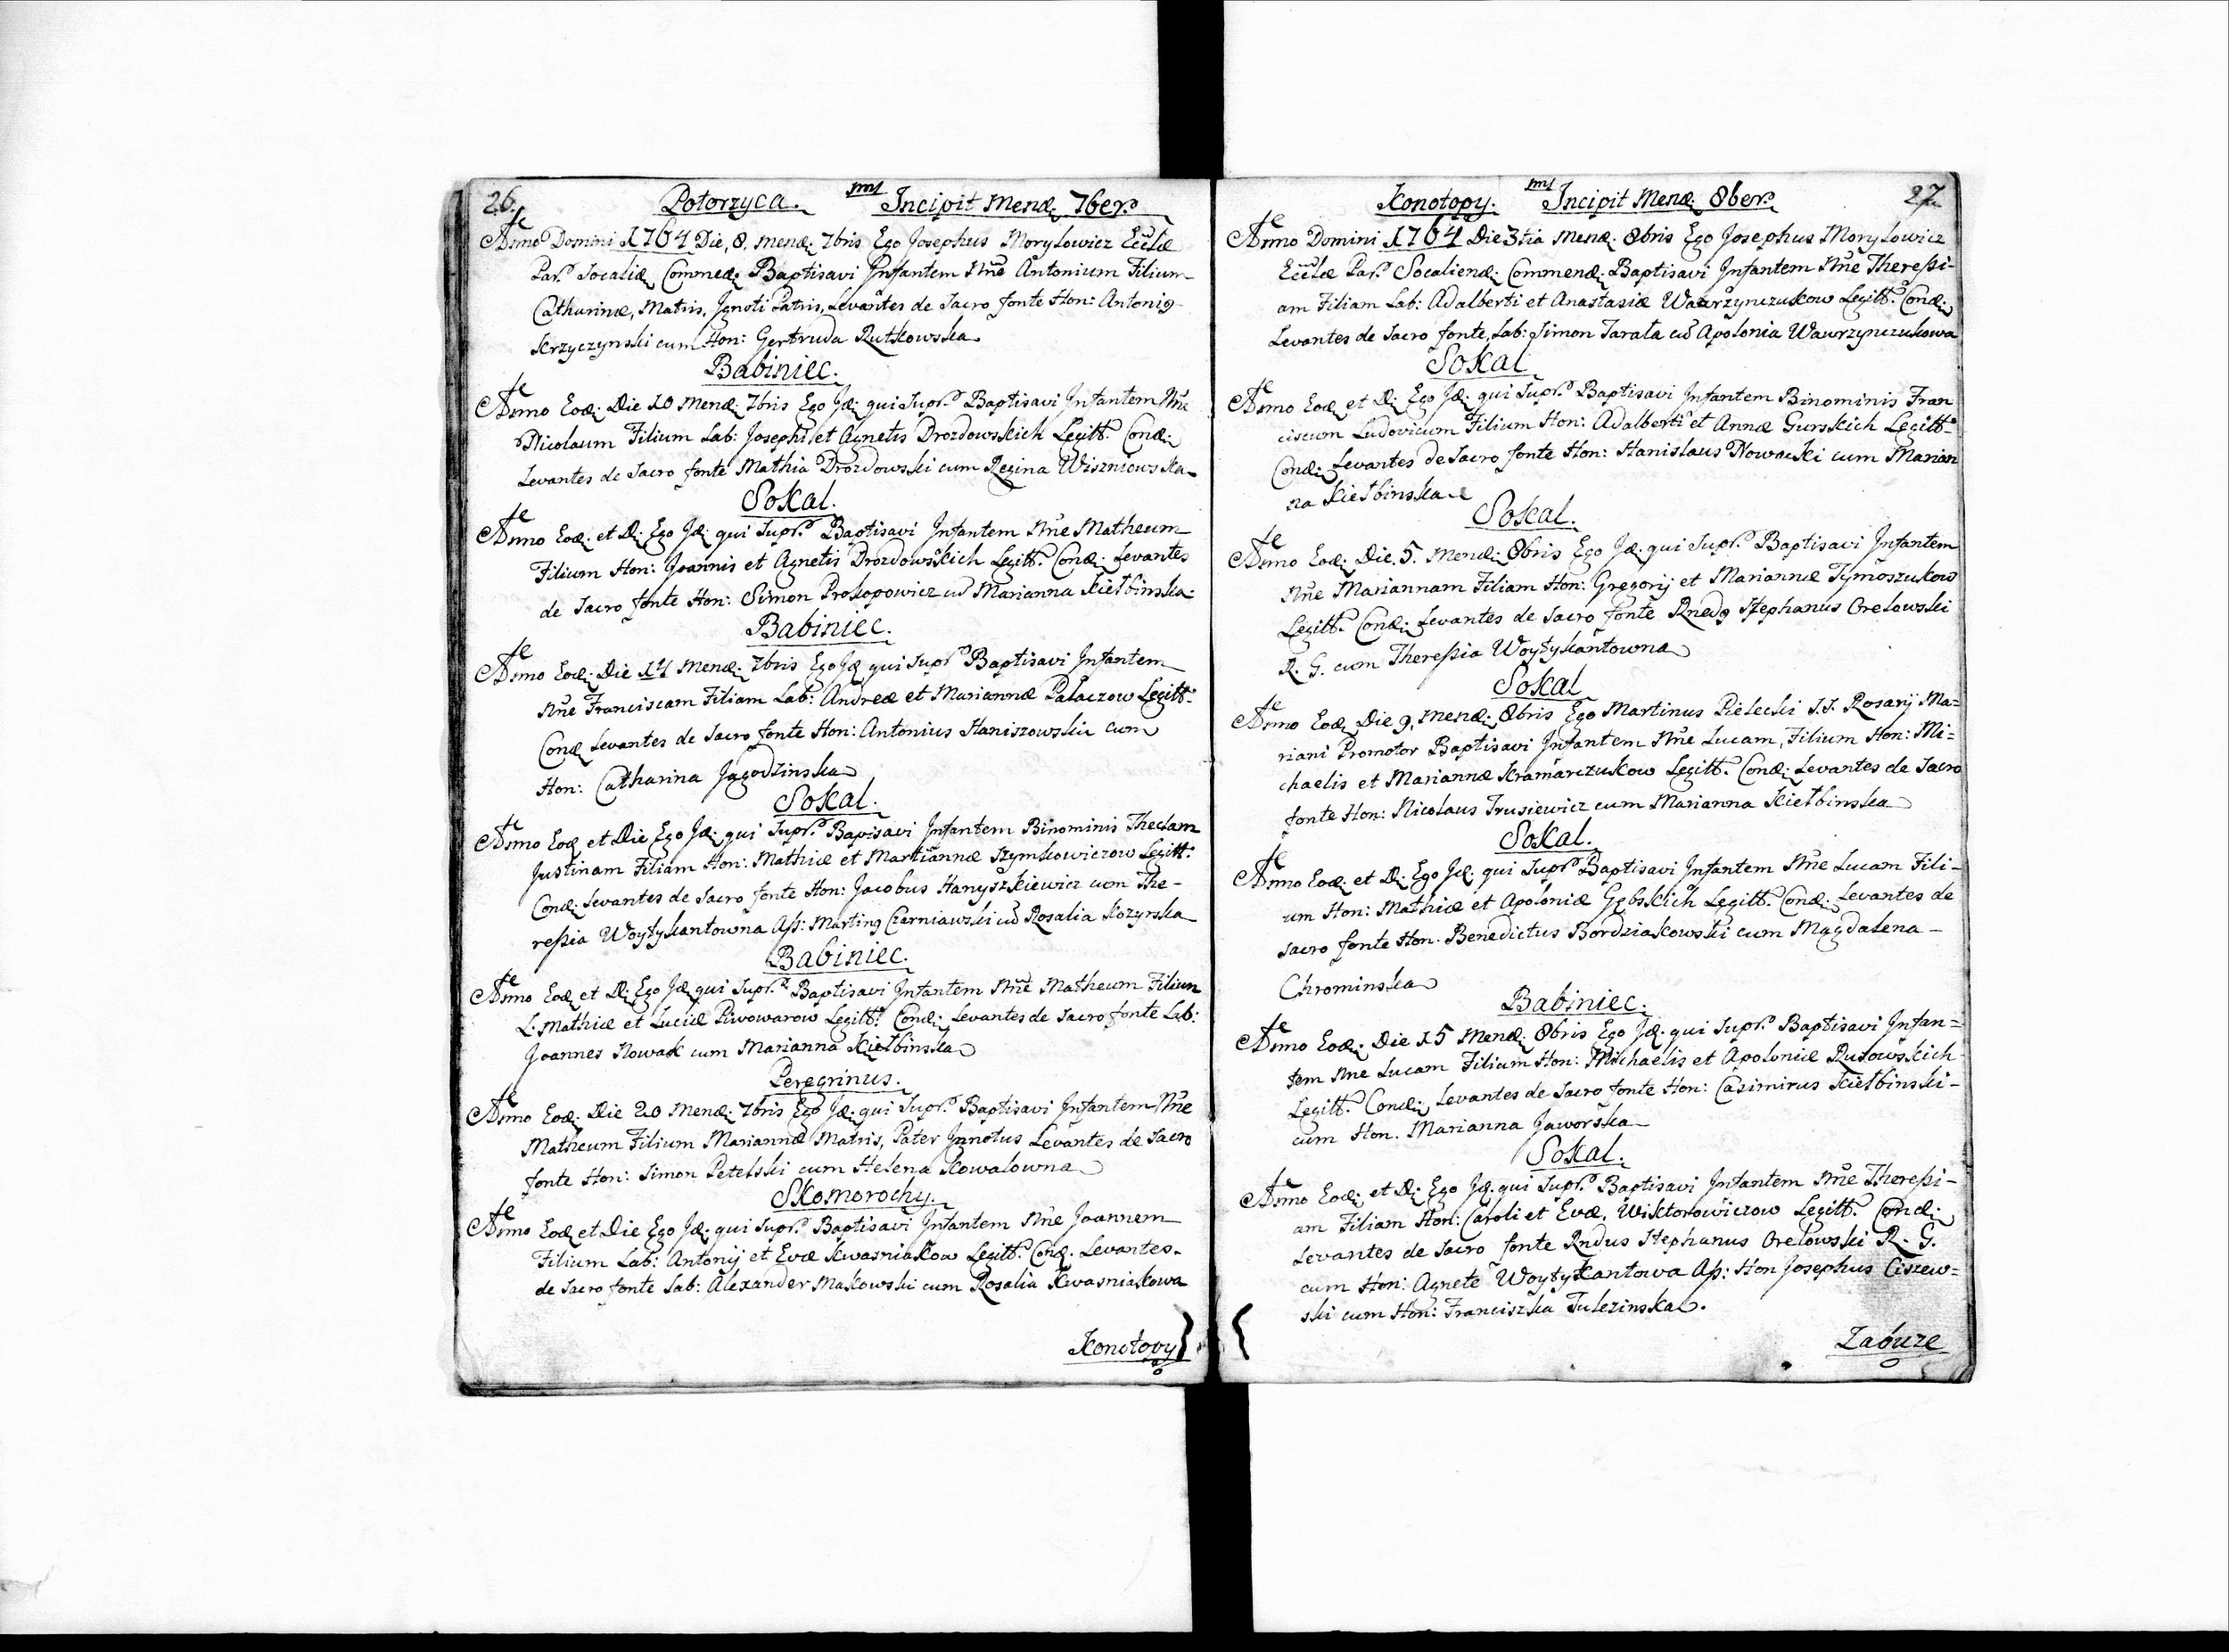 26.
Potorzyca. Incipit Menæ: 7ber.
Anno Domini 1764 Die, 8, Menæ: 7bris Ego Josephus Morylowicz Eccłæ
Par. Socaliæ Commeæ: Baptisavi Infantem Nne Antonium Filium
Catharinæ, Matris, Ignoti Patris, Levantes de Sacro fonte Hon: Antoni9
Krzyczynski cum Hon: Gertruda Rutkowska
Babiniec.
Anno Eoæ: Die 10 Menæ: 7bris Ego Jæ: qui Supr. Baptisavi Infantem Nne
Nicolaum Filium Lab: Josephi et Agnetis Drozdowskich Legitt. Conæ:
Levantes de Sacro fonte Mathia Drozdowski cum Regina Wiszniowska
Sokal.
Anno Eoæ: et D: Ego Jæ: qui Supr. Baptisavi Infantem Nne Matheum
Filium Hon: Joannis et Agnetis Drozdowskich Legitt. Conæ: Levantes
de Sacro fonte Hon: Simon Prokopowicz cu Marianna Kiełbinska
Babiniec.
Anno Eoæ: Die 14 Menæ: 7bris Ego Jæ qui Supr Baptisavi Infantem
Nne Franciscam Filiam Lab: Andreæ et Mariannæ Pałaczow Legitt:
Conæ Levantes de Sacro fonte Hon: Antonius Staniszowski cum
Hon: Catharina Jagodzinska
Sokal.
Anno Eoæ et Die Ego Jæ: qui Supr. Bapisavi Infantem Binominis Theclam
Justinam Filiam Hon: Mathiæ et Martiannæ Szymkowiczow Legitt:
Conæ: Levantes de Sacro fonte Hon: Jacobus Hanyszkiewicz cum The-
ressia Woytykantowna Ass: Martin9 Czerniawski cu Rosalia Kozyrska
Babiniec.
Anno Eoæ et D: Ego Jæ qui Supr. Baptisavi Infantem Nne Matheum Filium
L: Mathiæ et Luciæ Piwowarow Legitt: Conæ: Levantes de Sacro fonte Lab:
Joannes Nowak cum Marianna Kiełbinska
Peregrinus.
Anno Eoæ: Die 20 Menæ: 7bris Ego Jæ: qui Supr. Baptisavi Infantem Nne
Matheum Filium Mariannæ Matris, Pater Innotus Levantes de Sacro
fonte Hon: Simon Petelski cum Helena Kowalowna
Skomorochy.
Anno Eoæ et Die Ego Jæ: qui Supr. Baptisavi Infantem Nne Joannem
Filium Lab: Antonij et Evæ Kwasniakow Legitt. Conæ. Levantes
de Sacro fonte Lab: Alexander Makowski cum Rosalia Kwasniakowa
Konotopy
27
Konotopy. Incipit Menæ: 8ber.
Anno Domini 1764 Die 3tia Menæ: 8bris Ego Josephus Morylowicz
Eccłæ Par. Socalienæ: Commenæ: Baptisavi Infantem Nne Theressi-
am Filiam Lab: Adalberti et Anastasiæ Wawrzynczukow Legitt. Conæ:
Levantes de Sacro fonte, Lab: Simon Tarała cu Apolonia Wawrzynczukowa
Sokal
Anno Eoæ et D: Ego Jæ: qui Supr. Baptisavi Infantem Binominis Fran
ciscum Ludovicum Filium Hon: Adalberti et Annæ Gurskich Legitt:
Conæ: Levantes de Sacro fonte Hon: Stanislaus Nowacki cum Marian
na Kiełbinska
Sokal.
Anno Eoæ: Die. 5. Menæ: 8bris Ego Jæ: qui Supr. Baptisavi Infantem
Nne Mariannam Filiam Hon: Gregorij et Mariannæ Tymoszukow
Legitt. Conæ: Levantes de Sacro fonte Rned9 Stephanus Orelowski
R. G. cum Theressia Woytykantowna
Sokal
Anno Eoæ: Die 9. Menæ: 8bris Ego Martinus Pielecki S.S. Rosarij Ma=
riani Promotor Baptisavi Infantem Nne Lucam, Filium Hon: Mi=
chaelis et Mariannæ Kramarczukow Legitt. Conæ: Levantes de Sacro
fonte Hon: Nicolaus Trusiewicz cum Marianna Kiełbinska
Sokal.
Anno Eoæ: et D: Ego Jæ: qui Supr. Baptisavi Infantem Nne Lucam Fili-
um Hon: Mathiæ et Apoloniæ Gębskich Legitt. Conæ: Levantes de
Sacro fonte Hon. Benedictus Bordziakowski cum Magdalena
Chrominska
Babiniec.
Anno Eoæ: Die 15 Menæ: 8bris Ego Jæ: qui Supr. Baptisavi Infan=
tem Nne Lucam Filium Hon: Michaelis et Apoloniæ Rusowskich
Legitt. Conæ: Levantes de Sacro fonte Hon: Casimirus Kiełbinski
cum Hon. Marianna Jaworska
Sokal.
Anno Eoæ: et D: Ego Jæ: qui Supr. Baptisavi Infantem Nne Theressi-
am Filiam Hon: Caroli et Evæ, Wiktorowiczow Legitt. Conæ:
Levantes de Sacro fonte Rndus Stephanus Orelowski R. G.
cum Hon: Agnete Woytykantowa Ass: Hon Josephus Ciszew=
ski cum Hon: Franciszka Tulczinska.
Zabuze